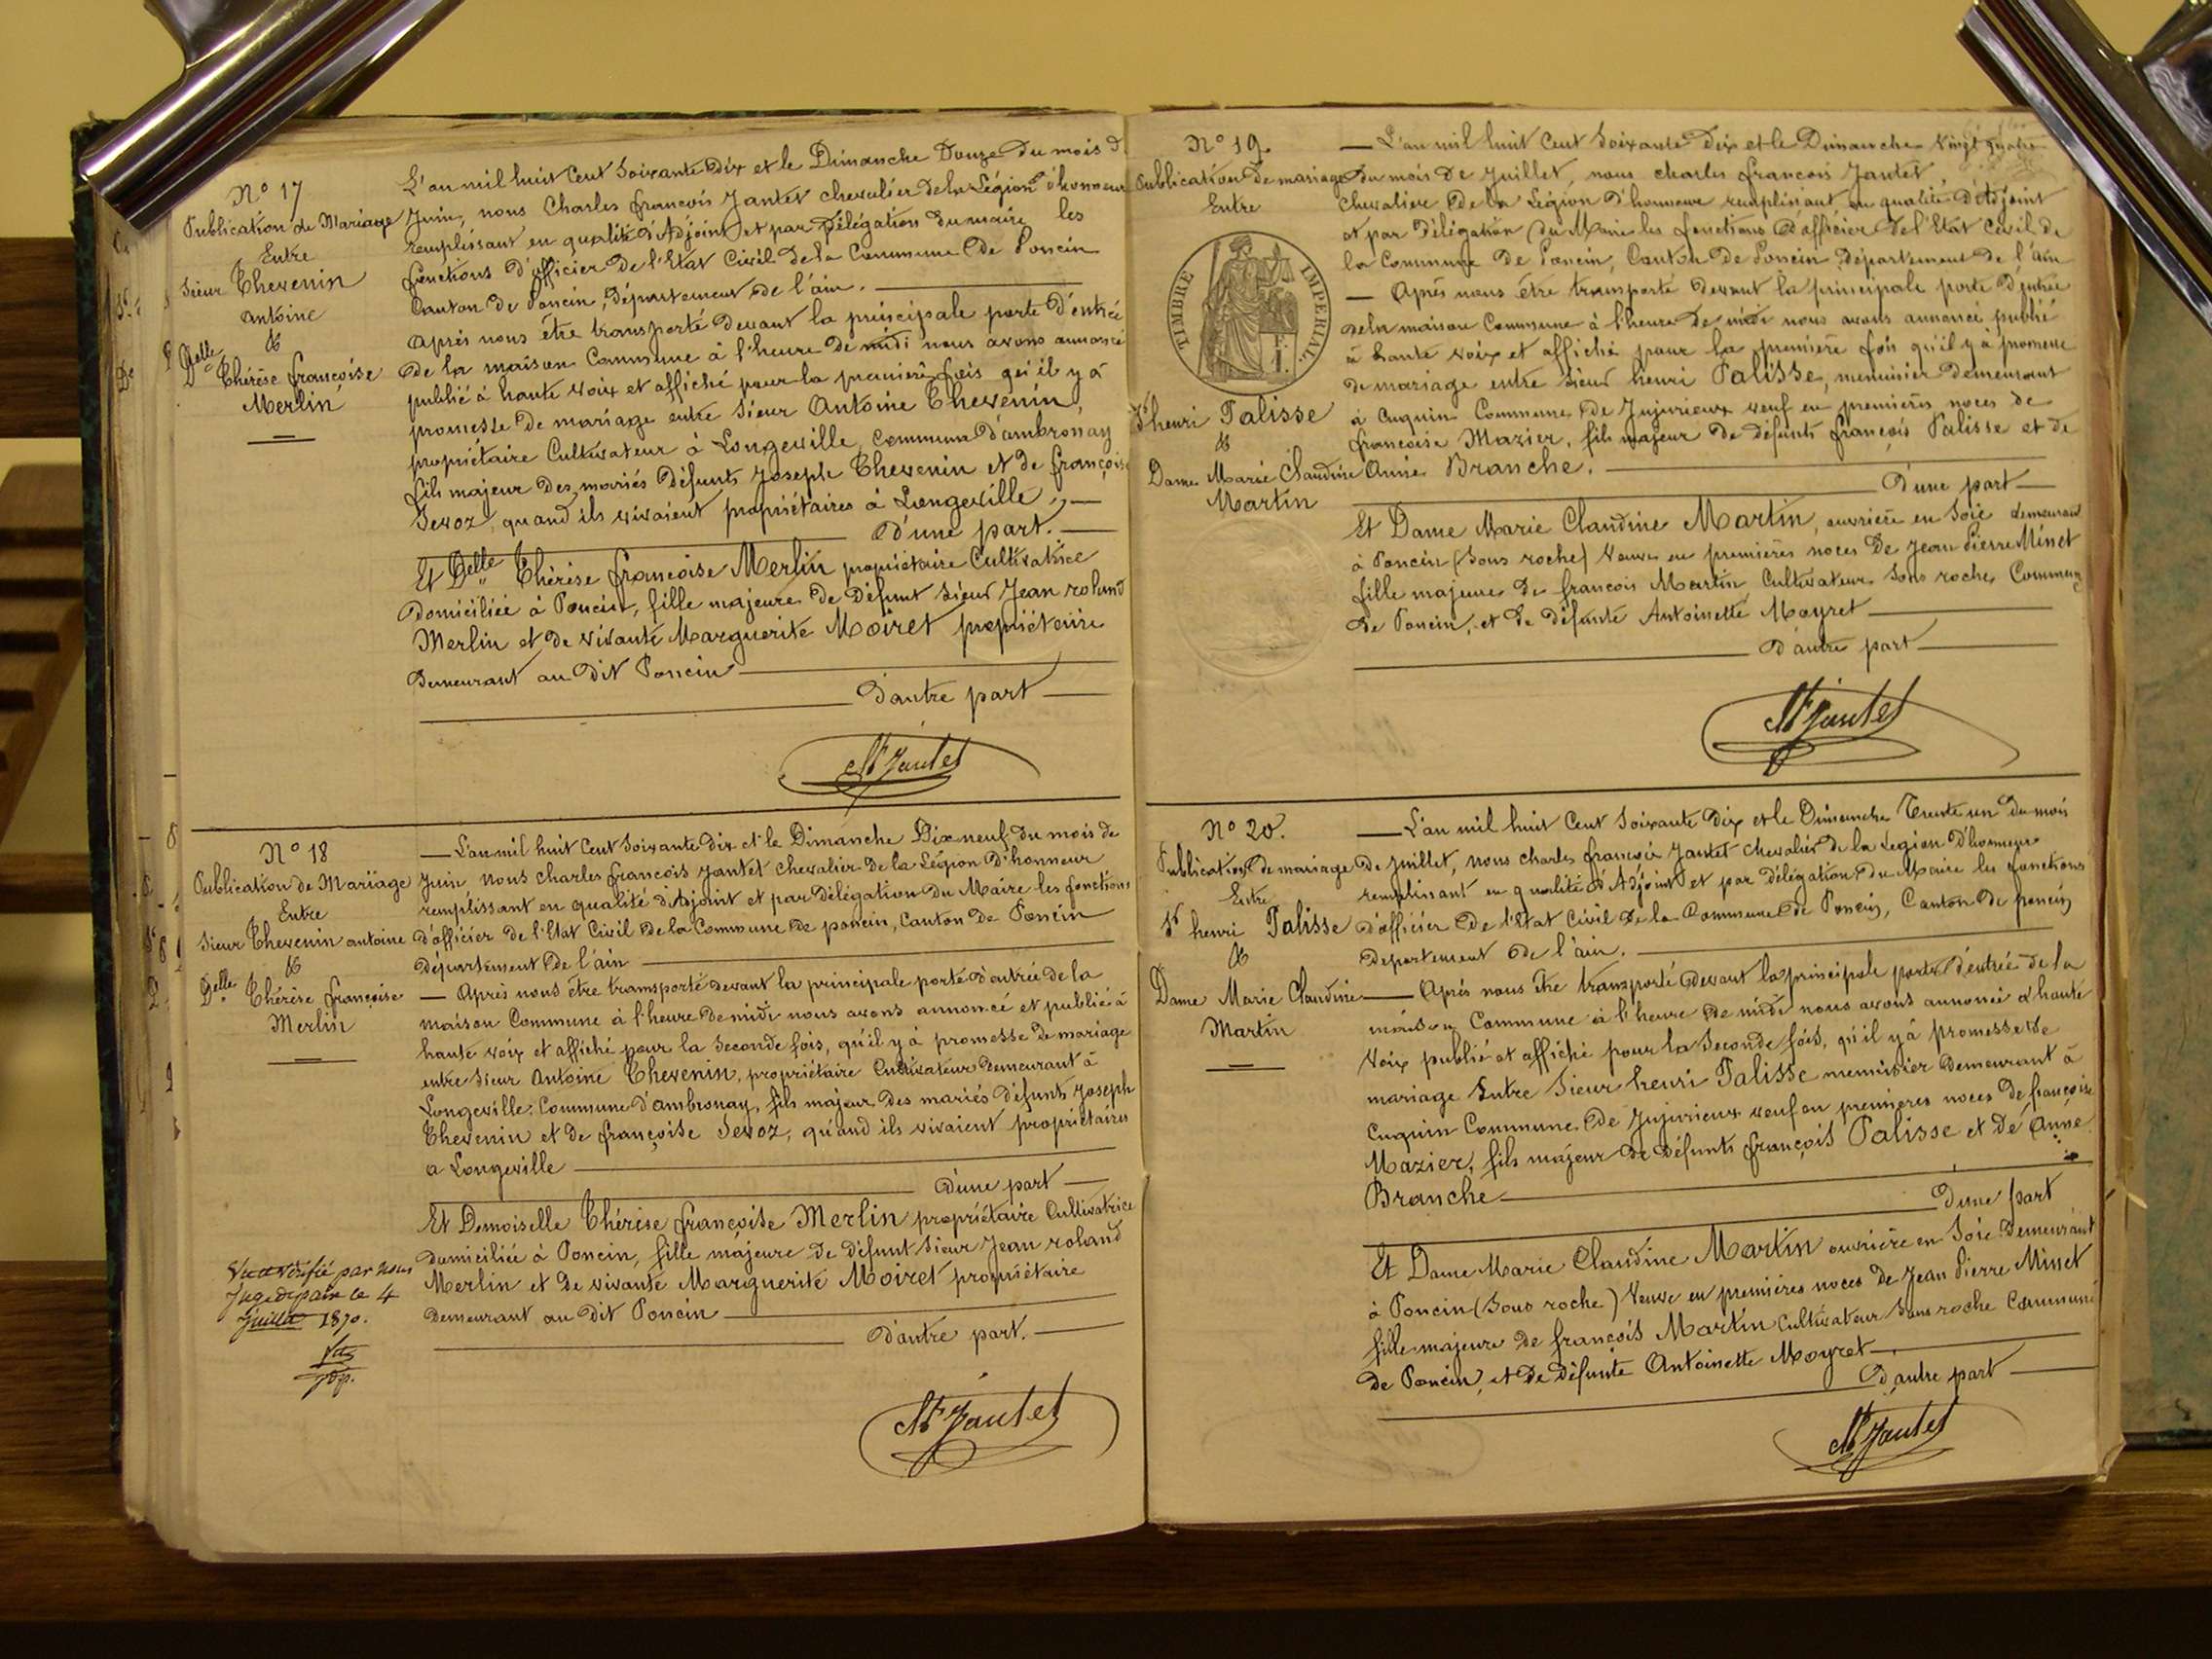 N° 17
Publication de Mariage
Entre
Sieur Thevenin
antoine
&
Delle Thérèse françoise
Merlin
L'an mil huit Cent Soixante Dix et le Dimanche Douze du mois d
Juin, nous Charles françois Jantet chevalier de la Légion d'honneur
remplissant en qualité d'Adjoint et par Délégation du maire les
fonctions d'officier de l'Etat Civil de la Commune de Poncin
Canton de Poncin, Département de l'ain.
Après nous être transporté devant la principale porte d'entrée
de la maison Commune à l'heure de midi nous avons annoncé
publié à haute voix et affiché pour la première fois qu'il y à
promesse de mariage entre Sieur Antoine Thevenin,
propriétaire Cultivateur à Longeville, Commune d'ambronay
fils majeur des mariés défunts Joseph Thevenin et de françoise
Sevoz, quand ils vivaient propriétaires à Longeville,
D'une part.
Et Delle Thérèse françoise Merlin propriétaire Cultivatrice
domiciliée à Poncin, fille majeure de défunt Sieur Jean roland
Merlin et de vivante Marguerite Moiret propriétaire
Demeurant au Dit Poncin
D'autre part
Jantet
N° 18
Publication de Mariage
Entre
Sieur Thevenin antoine
&
Delle Thérèse françoise
Merlin
L'an mil huit Cent Soixante Dix et le Dimanche Dix neuf du mois de
Juin, nous charles françois Jantet chevalier de la Légion d'honneur
remplissant en qualité d'Adjoint et par Délégation du Maire les fonctions
d'officier de l'Etat Civil de la Commune de poncin, Canton de Poncin
département de l'ain
Après nous être transporté devant la principale porte d'entrée de la
maison Commune à l'heure de midi nous avons annoncé et publié à
haute voix et affiché pour la Seconde fois, qu'il y à promesse de mariage
entre Sieur Antoine Thevenin, propriétaire Cultivateur Demeurant à
Longeville, Commune d'ambronay, fils majeur des mariés défunts Joseph
Thevenin et de françoise Sevoz, quand ils vivaient propriétaires
a Longeville
D'une part
Et Demoiselle Thérèse françoise Merlin propriétaire Cultivatrice
domiciliée à Poncin, fille majeure de défunt Sieur Jean roland
Merlin et de vivante Marguerite Moiret propriétaire
Demeurant au Dit Poncin
D'autre part.
Vu et vérifié par nous
Juge de paix le 4
Juillet 1870.
Jantet
N° 19.
Publication de mariage
Entre
TIMBRE IMPERIAL.
Sr henri Palisse
&
Dame Marie Claudine
Martin
L'an mil huit Cent Soixante Dix et le Dimanche Vingt quatre
du mois de Juillet, nous charles françois Jantet,
Chevalier de la Légion d'honneur remplissant en qualité d'Adjoint
et par Délégation du Maire les fonctions d'officier de l'Etat Civil de
la Commune de Poncin, Canton de Poncin, Département de l'ain
Après nous être transporté Devant la principale porte d'entrée
de la maison Commune à l'heure de midi nous avons annoncé publié
à haute voix et affiché pour la première fois qu'il y à promesse
de mariage entre Sieur henri Palisse, menuisier demeurant
à Cuquin Commune de Jujurieux veuf en premières noces de
françoise Mazier, fils majeur de défunts françois Palisse et de
Anne Branche.
D'une part
Et Dame Marie Claudine Martin, ouvrière en Soie demeurant
à Poncin (Sous roche) Veuve en premières noces de Jean Pierre Minet
fille majeure de françois Martin Cultivateur Sous roche, Commune
de Poncin, et de défunte Antoinette Moyret
D'autre part
Jantet
N° 20.
Publication de mariage
Entre
Sr henri Palisse
&
Dame Marie Claudine
Martin
L'an mil huit Cent Soixante Dix et le Dimanche Trente un du mois
de Juillet, nous charles françois Jantet chevalier de la Légion d'honneur
remplissant en qualité d'Adjoint et par délégation du Maire les fonctions
d'officier de l'Etat Civil de la Commune de Poncin, Canton de poncin
Departement de l'ain.
Après nous être transporté devant la principale porte d'entrée de la
maison Commune à l'heure de midi nous avons annoncé à haute
Voix publié et affiché pour la Seconde fois, qu'il y à promesse de
mariage Entre Sieur henri Palisse menuisier Demeurant à
Cuquin Commune de Jujurieux veuf en premières noces de françoise
Mazier, fils majeur de défunts françois Palisse et de Anne
Branche
D'une part
Et Dame Marie Claudine Martin ouvrière en Soie Demeurant
à Poncin (Sous roche) Veuve en premières noces de Jean Pierre Minet
fille majeure de françois Martin Cultivateur Sous roche Commune
de Poncin, et de défunte Antoinette Moyret
D'autre part
Jantet